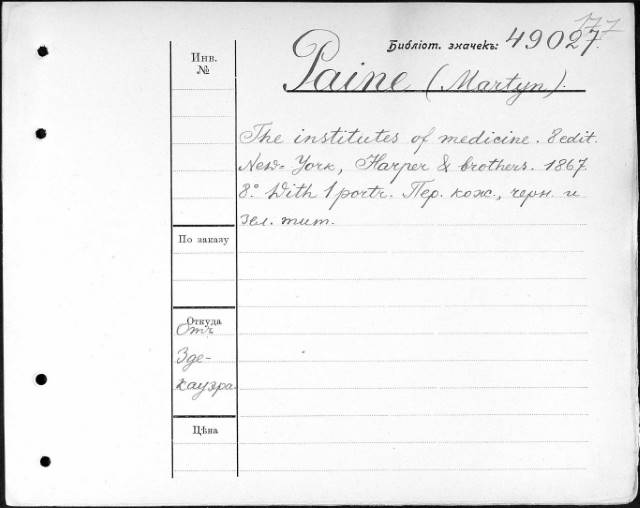 177
Библіот. значекъ: 49027.
Инв.
№
Paine (Martyn).
The institutes of medicine. 8 edit.
New-York, Harper & brothers. 1867.
8°. With 1 portr. Пер. кож., черн. и
зел. тит.
По заказу
Откуда
Отъ
Зде-
кауэра.
Цѣна